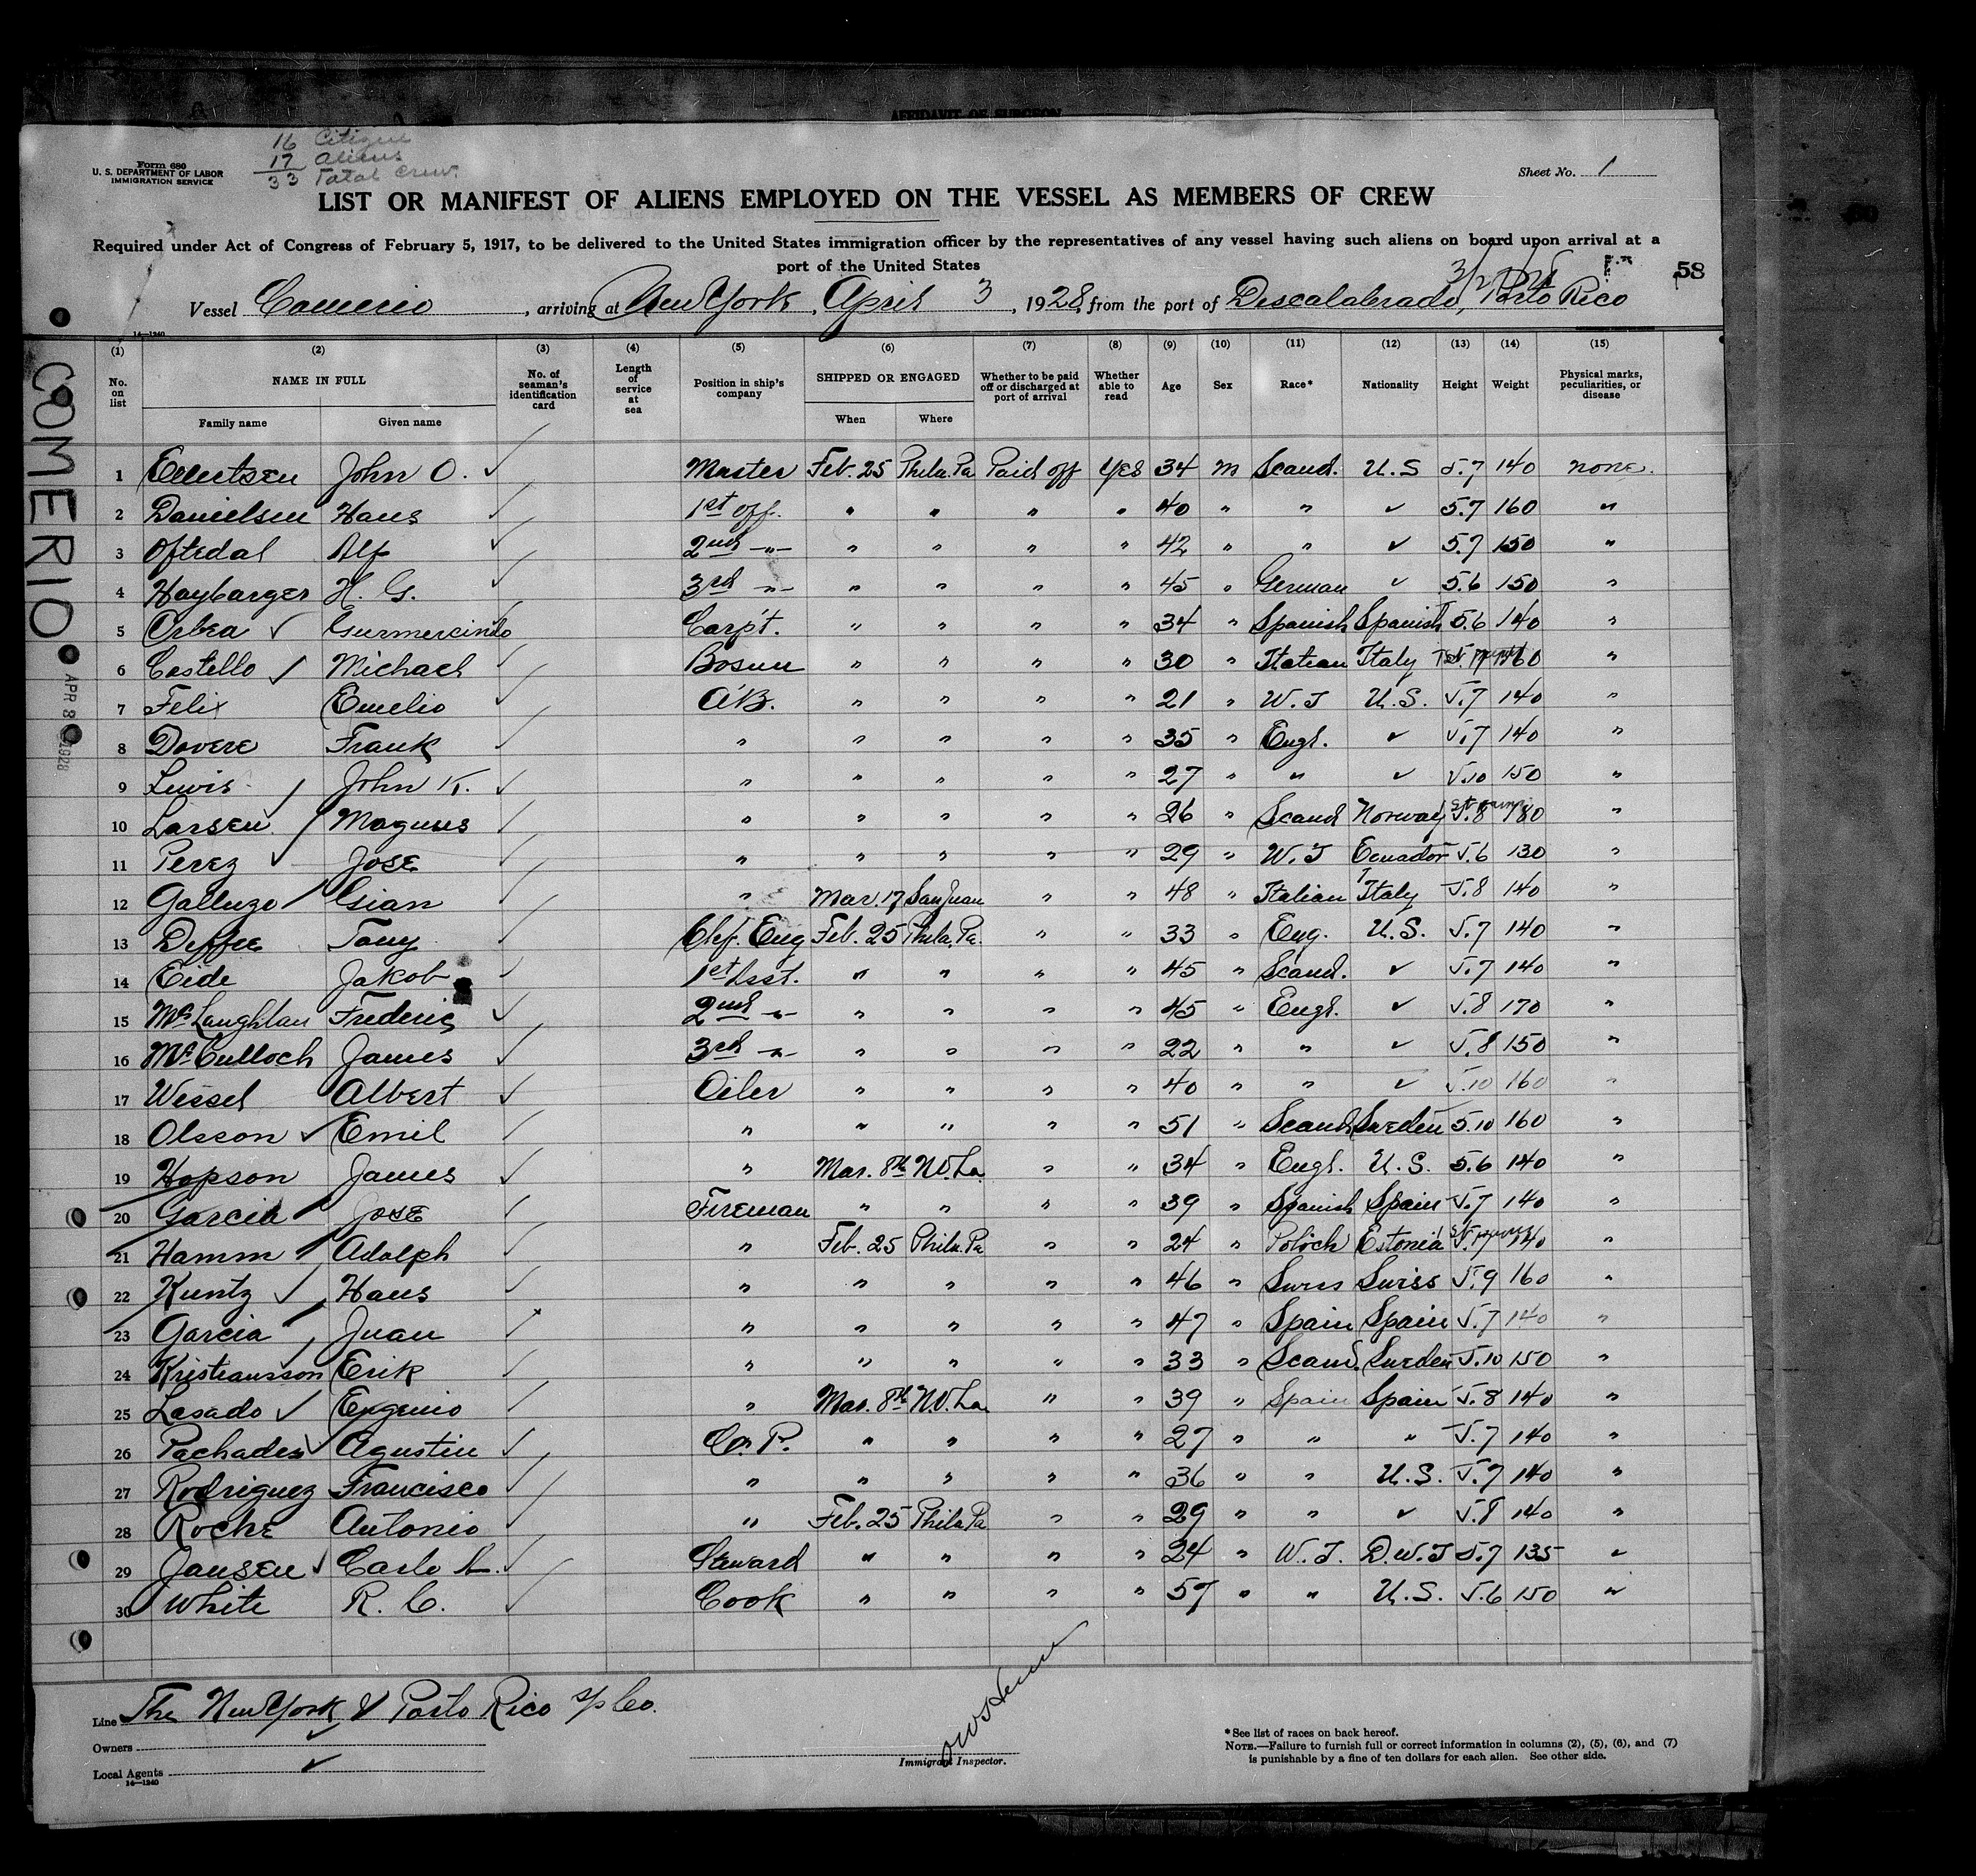 AFFIDAVIT OF SURGEON
16 Citizens
17 Aliens
33 Total Crew.
Form 680
U. S. DEPARTMENT OF LABOR
IMMIGRATION SERVICE
Sheet No. 1
LIST OR MANIFEST OF ALIENS EMPLOYED ON THE VESSEL AS MEMBERS OF CREW
Required under Act of Congress of February 5, 1917, to be delivered to the United States immigration officer by the representatives of any vessel having such aliens on board upon arrival at a
port of the United States
58
Vessel Comerio, arriving at New York, April 3, 1928, from the port of Descalabrado, Porto Rico
14—1240
COMERIO
APR 8 1928
(1) (2) (3) (4) (5) (6) (7) (8) (9) (10) (11) (12) (13) (14) (15)
No. on list NAME IN FULL No. of seaman's identification card Length of service at sea Position in ship's company SHIPPED OR ENGAGED Whether to be paid off or discharged at port of arrival Whether able to read Age Sex Race* Nationality Height Weight Physical marks, peculiarities, or disease
Family name Given name When Where
1 Evertsen John O. Master Feb. 25 Phila. Pa Paid off Yes 34 M Scand. U.S 5.7 140 none.
2 Danielsen Hans 1st off. " " " " 40 " " ✓ 5.7 160 "
3 Oftedal Alf 2nd -"- " " " " 42 " " ✓ 5.7 150 "
4 Haybarger H. G. 3rd -"- " " " " 45 " German ✓ 5.6 150 "
5 Orbea ✓ Gurmercindo Carp't. " " " " 34 " Spanish Spanish 5.6 140 "
6 Costello ✓ Michael Bosun " " " " 30 " Italian Italy 160 "
7 Felix Emelio A.B. " " " " 21 " W. I U.S. 5.7 140 "
8 Dovere Frank " " " " " 35 " Engl. ✓ 5.7 140 "
9 Lewis John K. " " " " " 27 " " ✓ 5.10 150 "
10 Larsen ✓ Magnus " " " " " 26 " Scand Norway 5.8 180 "
11 Perez ✓ Jose " " " " " 29 " W. I Ecuador 5.6 130 "
12 Galluzo Gian " Mar. 17 San Juan " " 48 " Italian Italy 5.8 140 "
13 Deffee Tony Chf. Eng Feb. 25 Phila. Pa. " " 33 " Eng. U.S. 5.7 140 "
14 Eide Jakob 1st Asst. " " " " 45 " Scand. ✓ 5.7 140 "
15 McLaughlan Frederic 2nd -"- " " " " 45 " Engl. ✓ 5.8 170 "
16 McCulloch James 3rd -"- " " " " 22 " " ✓ 5.8 150 "
17 Wessel Albert Oiler " " " " 40 " " ✓ 5.10 160 "
18 Olsson ✓ Emil " " " " " 51 " Scand Sweden 5.10 160 "
19 Hopson James " Mar. 8th N.O. La. " " 34 " Engl. U.S. 5.6 140 "
20 Garcia Jose Fireman " " " " 39 " Spanish Spain 5.7 140 "
21 Hamm Adolph " Feb. 25 Phila. Pa " " 24 " Polich Estonia 5.7 140 "
22 Kuntz ✓ Hans " " " " " 46 " Swiss Swiss 5.9 160 "
23 Garcia Juan " " " " " 47 " Spain Spain 5.7 140 "
24 Kristiansson Erik " " " " " 33 " Scand. Sweden 5.10 150 "
25 Lasado ✓ Eugenio " Mar. 8th N.O. La. " " 39 " Spain Spain 5.8 140 "
26 Pachades ✓ Agustin C. P. " " " " 27 " " " 5.7 140 "
27 Rodriguez Francisco " " " " " 36 " " U.S. 5.7 140 "
28 Roche Antonio " Feb. 25 Phila. Pa " " 29 " " ✓ 5.8 140 "
29 Jansen ✓ Carlo A. Steward " " " " 24 " W. I. D.W.I 5.7 135 "
30 White R. C. Cook " " " " 57 " " U.S. 5.6 150 "
Line The New York & Porto Rico S/S Co.
Owners ✓
Local Agents ✓
14—1240
Immigrant Inspector.
*See list of races on back hereof.
NOTE.—Failure to furnish full or correct information in columns (2), (5), (6), and (7)
is punishable by a fine of ten dollars for each alien. See other side.